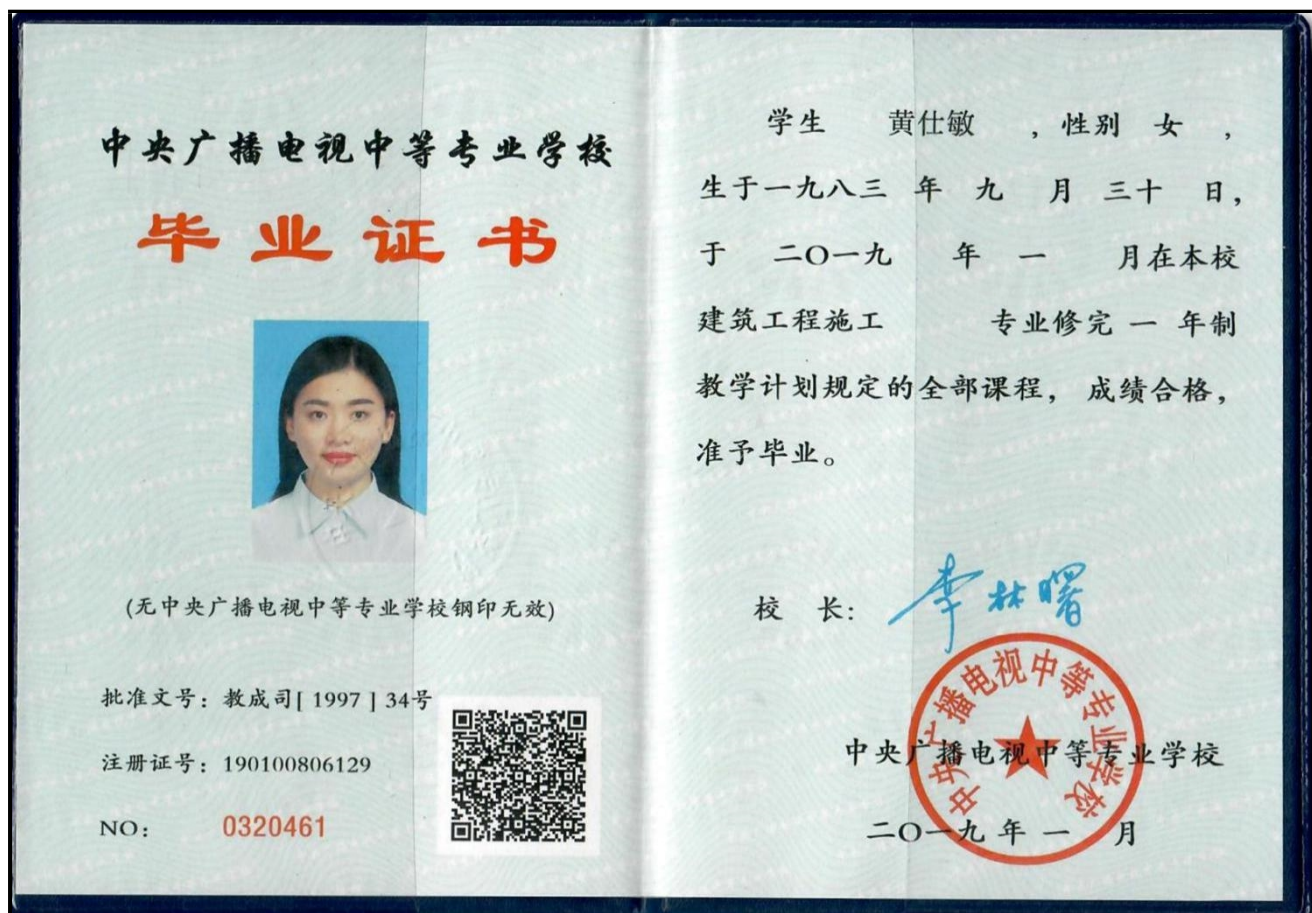 中央广播电视中等专业学校
毕业证书
(无中央广播电视中等专业学校钢印无效)
批准文号：教成司[ 1997 ] 34号
注册证号：190100806129
NO： 0320461
学生 黄仕敏 ，性别 女 ，
生于一九八三 年 九 月 三十 日，
于 二〇一九 年 一 月在本校
建筑工程施工 专业修完 一 年制
教学计划规定的全部课程，成绩合格，
准予毕业。
校 长：李林曙
中央广播电视中等专业学校
中央广播电视中等专业学校
二〇一九 年 一 月